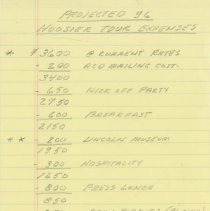 PROJECTED 96
HOOSIER TOUR EXPENSES
* $3600 @ CURRENT RATES
- 200 ACD MAILING COST.
3400
- 650 KICK OFF PARTY
2750
- 600 BREAKFAST
2150
** - 200 LINCOLN MUSEUM
1950
- 300 HOSPITALITY
1650
- 800 PRESS LUNCH
850